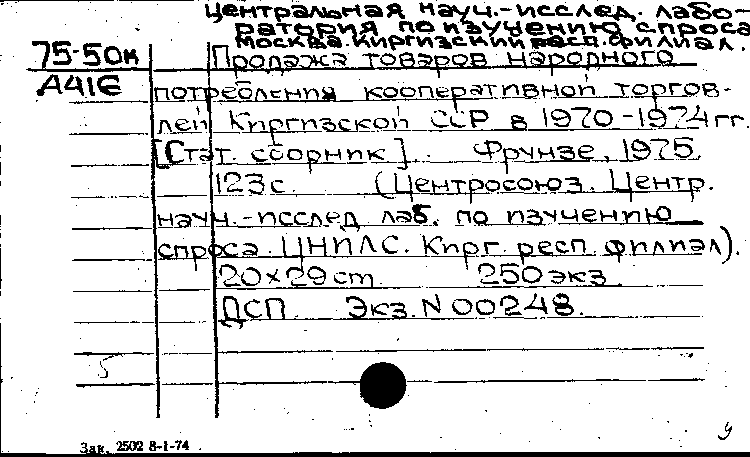 Центральная науч.-исслед. лабо-
ратория по изучению спроса
Москва. Киргизский респ. филиал.
75-50к Продажа товаров народного
А416 потребления кооперативной торгов-
лей Киргизской ССР в 1970-1974 гг.
[Стат. сборник]. Фрунзе, 1975.
123 с. (Центросоюз. Центр.
науч.-исслед лаб. по изучению
спроса. ЦНИЛС. Кирг. респ. филиал).
20×29 cm 250 экз.
ДСП. Экз. N 00248.
5
у
Зак. 2502 8-1-74